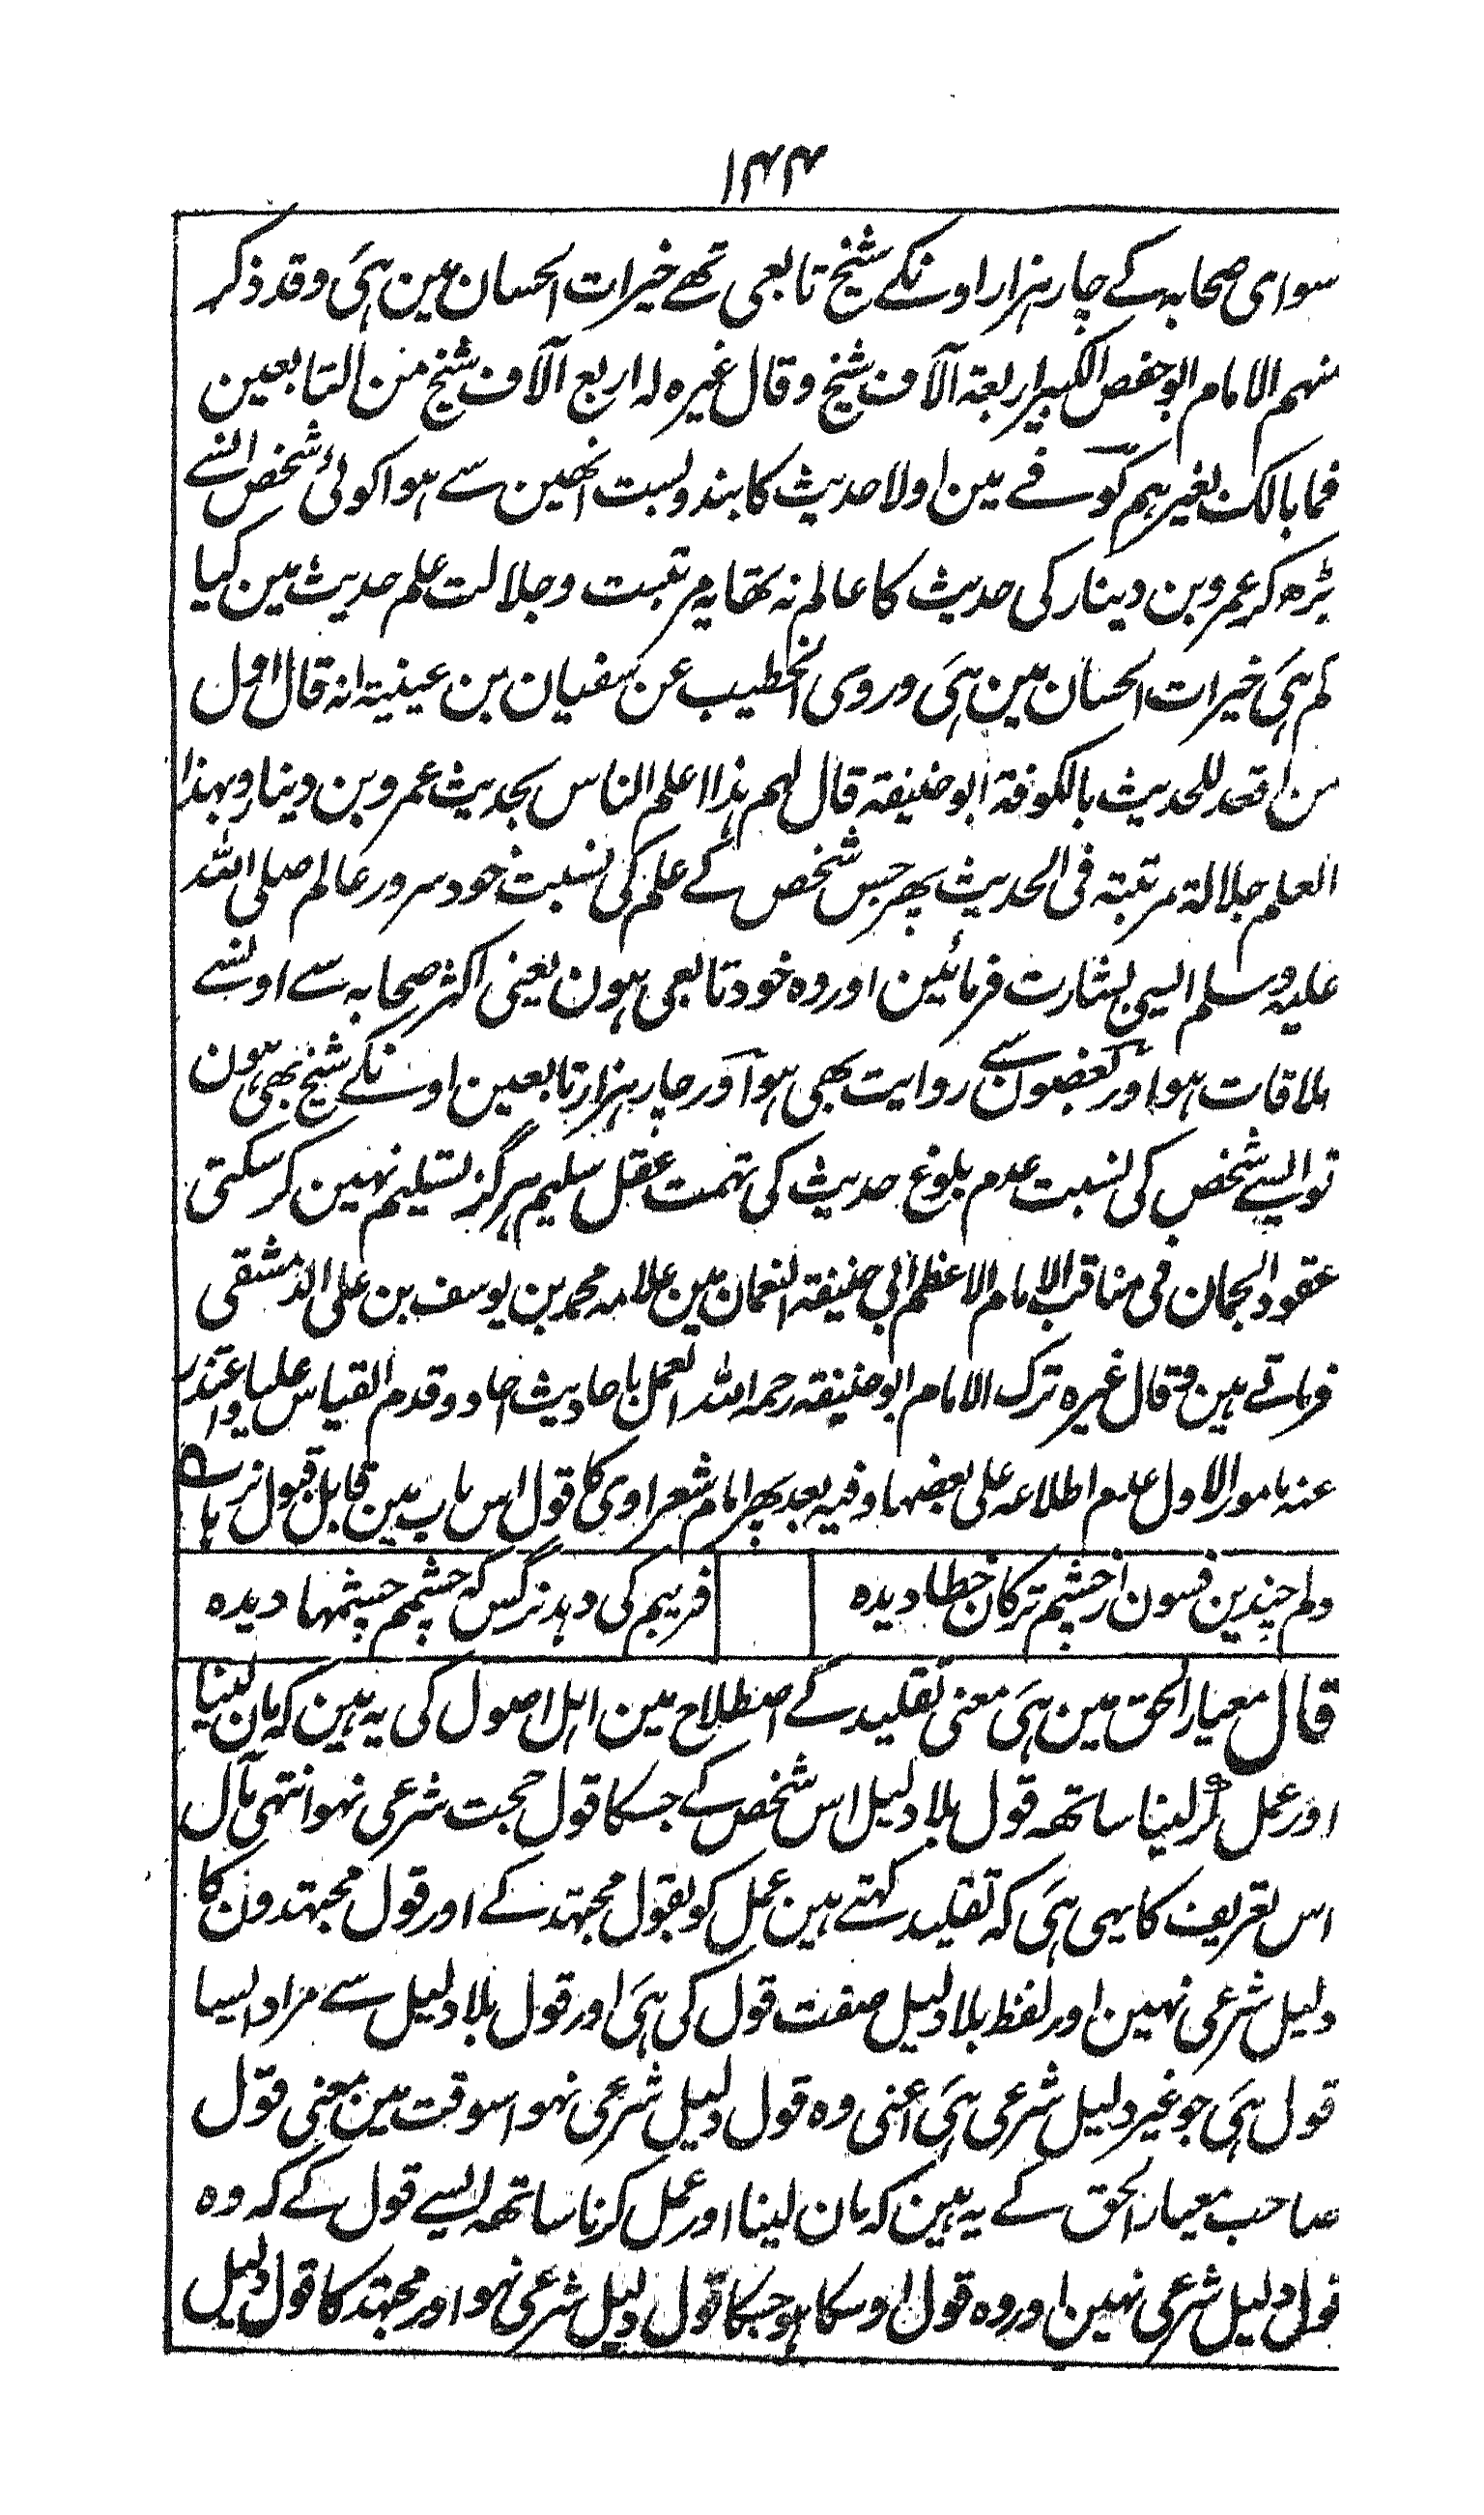 ۱۴۴
سوای صحابہ کے چار ہزار اونکے شیخ تابعی تھے خیرات الحسان مین ہی وقد ذکر
منہم الامام ابو حفص الکبیر اربعة آلاف شیخ وقال غیرہ لہ اربع آلاف شیخ من التابعین
فما بالک بغیرہم کوفے مین اولا حدیث کا بندوبست انھین سے ہوا کوئی شخص انسے
بڑھ کر عمرو بن دینار کی حدیث کا عالم نہ تھا یہ مرتبت وجلالت علم حدیث مین کیا
کم ہی خیرات الحسان مین ہی وروی الخطیب عن سفیان بن عینیة انہ قال اول
من اقعد للحدیث بالکوفة ابو حنیفة قال لہم ہذا اعلم الناس بحدیث عمرو بن دینار وبہذا
العلم جلالة مرتبتہ فی الحدیث پھر جس شخص کے علم کی نسبت خود سرور عالم صلی اللہ
علیہ وسلم ایسی بشارت فرمائین اور وہ خود تابعی ہون یعنی اکثر صحابہ سے اونسے
ملاقات ہو اور بعضون سے روایت بھی ہو اور چار ہزار تابعین اونکے شیخ بھی ہون
تو ایسے شخص کی نسبت عدم بلوغ حدیث کی تہمت عقل سلیم ہرگز تسلیم نہین کر سکتی
عقود الجمان فی مناقب الامام الاعظم ابی حنیفة النعمان مین علامہ محمد بن یوسف بن علی الدمشقی
فرماتے ہین وقال غیرہ ترک الامام ابو حنیفة رحمہ اللہ العمل باحادیث احاد وقدم القیاس علیہا واعتذر
عنہ بامور الاول عدم اطلاعہ علی بعضہا وفیہ بعد پھر امام شعراوی کا قول اس باب مین قابل قبول نرہا
دلم چندین فسون از چشم ترکان خطا دیدہ فریبم کی دہد نرگس کہ چشمم چشمہا دیدہ
قال معیار الحق مین ہی معنی تقلید کے اصطلاح مین اہل اصول کی یہ ہین کہ مان لینا
اور عمل کر لینا ساتھہ قول بلا دلیل اس شخص کے جسکا قول حجت شرعی نہو انتہی مآل
اس تعریف کا یہی ہی کہ تقلید کہتے ہین عمل کو بقول مجتہد کے اور قول مجتہدون کا
دلیل شرعی نہین اور لفظ بلا دلیل صفت قول کی ہی اور قول بلا دلیل سے مراد ایسا
قول ہی جو غیر دلیل شرعی ہی اعنی وہ قول دلیل شرعی نہو اسوقت مین معنی قول
صاحب معیار الحق کے یہ ہین کہ مان لینا اور عمل کرنا ساتھہ ایسے قول کے کہ وہ
قول دلیل شرعی نہین اور وہ قول اوسکا ہو جسکا قول دلیل شرعی نہو اور مجتہد کا قول دلیل